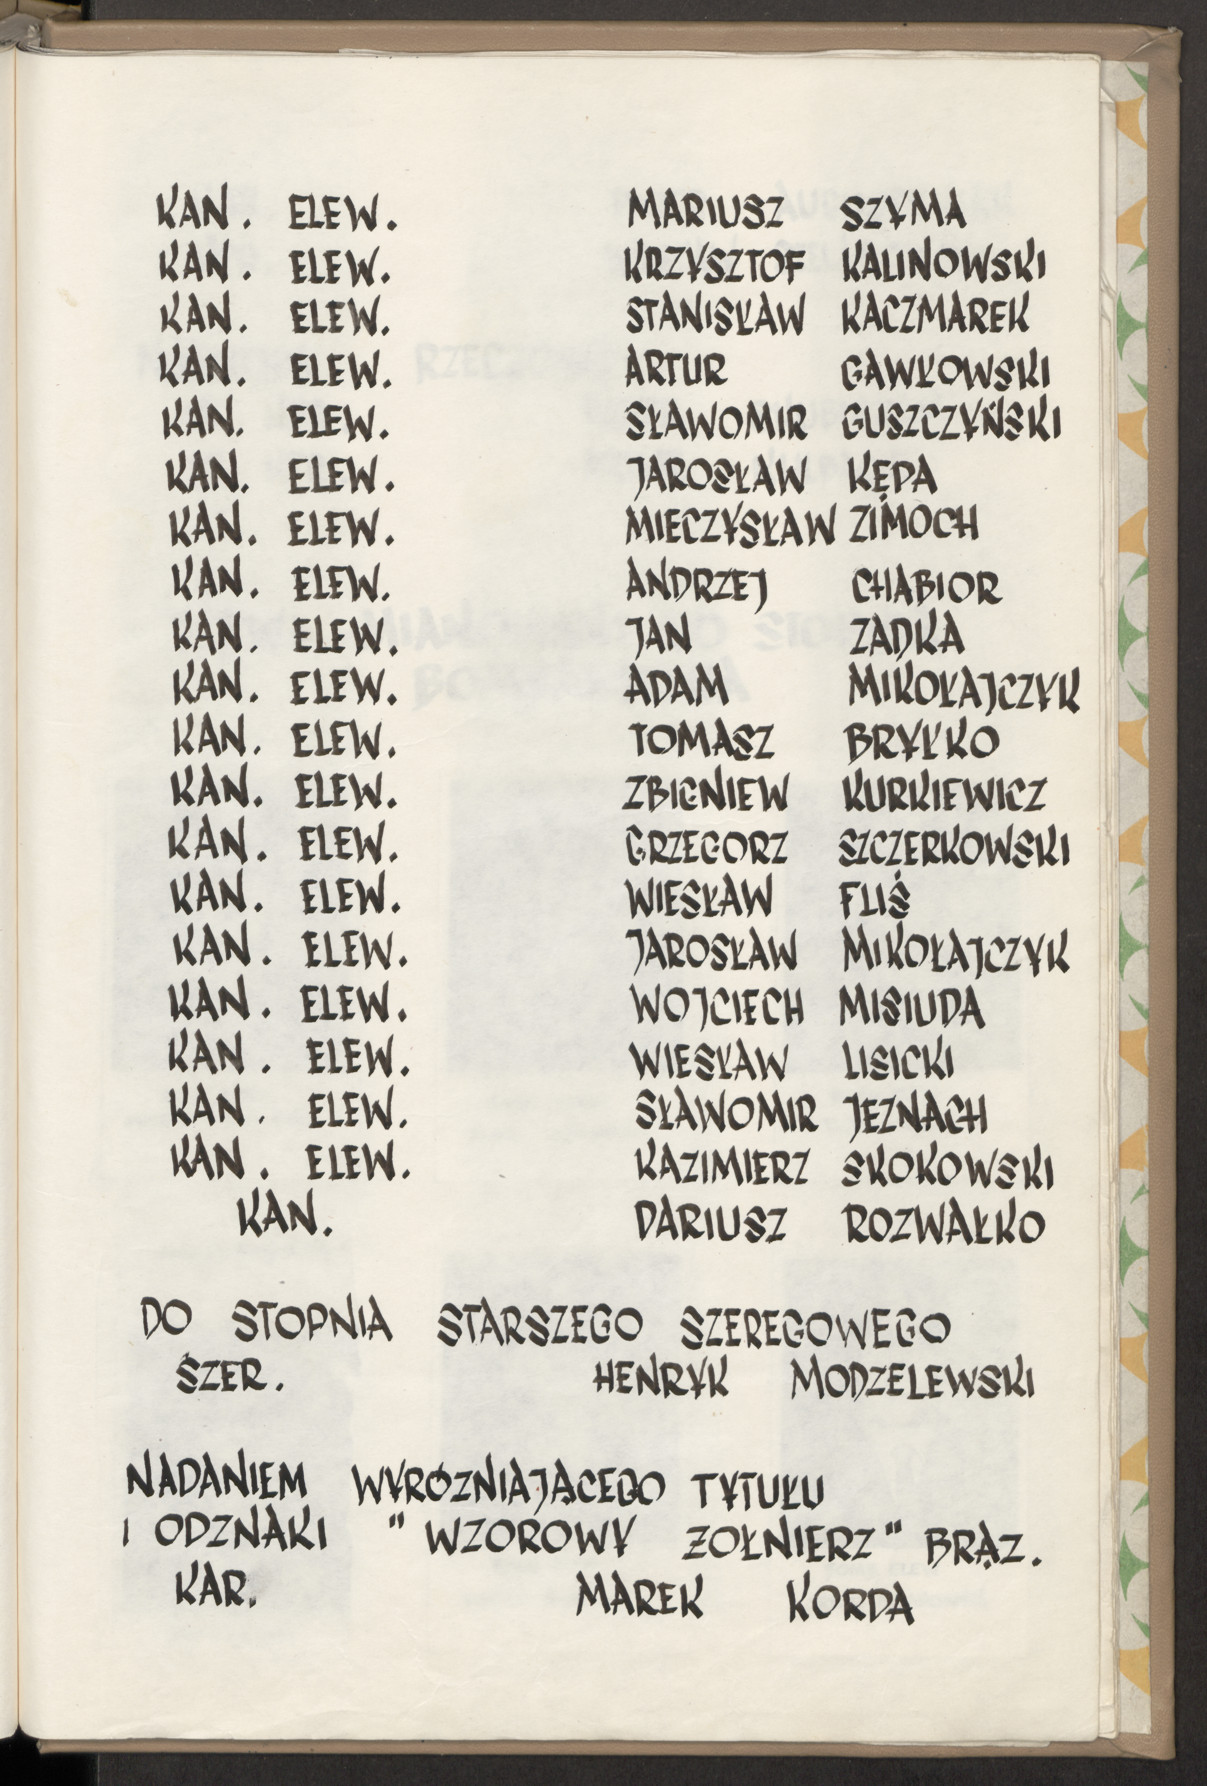 KAN. ELEW. MARIUSZ SZYMA
KAN. ELEW. KRZYSZTOF KALINOWSKI
KAN. ELEW. STANISŁAW KACZMAREK
KAN. ELEW. ARTUR GAWŁOWSKI
KAN. ELEW. SŁAWOMIR GUSZCZYŃSKI
KAN. ELEW. JAROSŁAW KĘPA
KAN. ELEW. MIECZYSŁAW ZIMOCH
KAN. ELEW. ANDRZEJ CHABIOR
KAN. ELEW. JAN ZADKA
KAN. ELEW. ADAM MIKOŁAJCZYK
KAN. ELEW. TOMASZ BRYŁKO
KAN. ELEW. ZBIGNIEW KURKIEWICZ
KAN. ELEW. GRZEGORZ SZCZERKOWSKI
KAN. ELEW. WIESŁAW FLIŚ
KAN. ELEW. JAROSŁAW MIKOŁAJCZYK
KAN. ELEW. WOJCIECH MISIUDA
KAN. ELEW. WIESŁAW LISICKI
KAN. ELEW. SŁAWOMIR JEZNACH
KAN. ELEW. KAZIMIERZ SKOKOWSKI
KAN. DARIUSZ ROZWAŁKO
DO STOPNIA STARSZEGO SZEREGOWEGO
SZER. HENRYK MODZELEWSKI
NADANIEM WYRÓZNIAJĄCEGO TYTUŁU
I ODZNAKI "WZOROWY ŻOŁNIERZ" BRĄZ.
KAR. MAREK KORDA